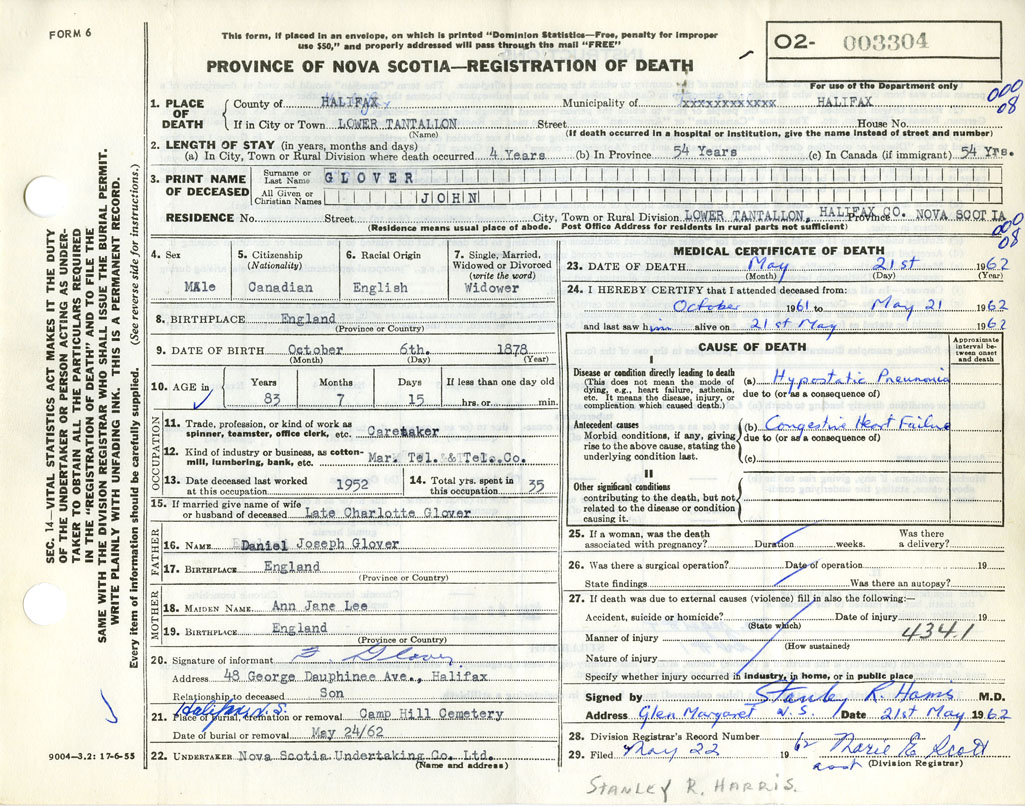 FORM 6
This form, if placed in an envelope, on which is printed "Dominion Statistics—Free, penalty for improper
use $50," and properly addressed will pass through the mail "FREE"
PROVINCE OF NOVA SCOTIA—REGISTRATION OF DEATH
02- 003304
For use of the Department only
000
08
1. PLACE OF DEATH
County of HALIFAX Municipality of xxxxxxxxxxxx HALIFAX
If in City or Town LOWER TANTALLON Street House No.
(Name) (If death occurred in a hospital or institution, give the name instead of street and number)
2. LENGTH OF STAY (in years, months and days)
(a) In City, Town or Rural Division where death occurred 4 Years (b) In Province 54 Years (c) In Canada (if immigrant) 54 Yrs.
3. PRINT NAME OF DECEASED
Surname or Last Name GLOVER
All Given or Christian Names JOHN
RESIDENCE No. Street City, Town or Rural Division LOWER TANTALLON, HALIFAX CO. Province NOVA SCOTIA
(Residence means usual place of abode. Post Office Address for residents in rural parts not sufficient)
000
08
4. Sex 5. Citizenship (Nationality) 6. Racial Origin 7. Single, Married, Widowed or Divorced (write the word)
MAle Canadian English Widower
8. BIRTHPLACE England
(Province or Country)
9. DATE OF BIRTH October 6th. 1878
(Month) (Day) (Year)
10. AGE in Years Months Days If less than one day old
83 7 15 hrs. or min.
OCCUPATION
11. Trade, profession, or kind of work as
spinner, teamster, office clerk, etc. Caretaker
12. Kind of industry or business, as cotton-
mill, lumbering, bank, etc. Mar. Tel. & Tel. Co.
13. Date deceased last worked at this occupation 1952 14. Total yrs. spent in this occupation 35
15. If married give name of wife
or husband of deceased Late Charlotte Glover
FATHER
16. NAME Daniel Joseph Glover
17. BIRTHPLACE England
(Province or Country)
MOTHER
18. MAIDEN NAME Ann Jane Lee
19. BIRTHPLACE England
(Province or Country)
20. Signature of informant Glover
Address 48 George Dauphinee Ave., Halifax
Relationship to deceased Son
Halifax N.S.
21. Place of burial, cremation or removal Camp Hill Cemetery
Date of burial or removal May 24/62
22. UNDERTAKER Nova Scotia Undertaking Co. Ltd.
(Name and address)
MEDICAL CERTIFICATE OF DEATH
23. DATE OF DEATH May 21st 1962
(Month) (Day) (Year)
24. I HEREBY CERTIFY that I attended deceased from:
October 1961 to May 21 1962
and last saw him alive on 21st May 1962
CAUSE OF DEATH
Approximate interval between onset and death
I
Disease or condition directly leading to death
(This does not mean the mode of
dying, e.g., heart failure, asthenia,
etc. It means the disease, injury, or
complication which caused death.)
(a) Hypostatic Pneumonia
due to (or as a consequence of)
Antecedent causes
Morbid conditions, if any, giving
rise to the above cause, stating the
underlying condition last.
(b) Congestive Heart Failure
due to (or as a consequence of)
(c)
II
Other significant conditions
contributing to the death, but not
related to the disease or condition
causing it.
25. If a woman, was the death
associated with pregnancy? Duration weeks. Was there a delivery?
26. Was there a surgical operation? Date of operation 19
State findings Was there an autopsy?
27. If death was due to external causes (violence) fill in also the following:—
Accident, suicide or homicide? Date of injury 19
(State which)
Manner of injury 4341
(How sustained)
Nature of injury
Specify whether injury occurred in industry, in home, or in public place
Signed by Stanley R. Harris M.D.
Address Glen Margaret N.S. Date 21st May 1962
28. Division Registrar's Record Number
29. Filed May 22 1962 Marie E Scott
asst (Division Registrar)
STANLEY R. HARRIS.
SEC. 14—VITAL STATISTICS ACT MAKES IT THE DUTY
OF THE UNDERTAKER OR PERSON ACTING AS UNDER-
TAKER TO OBTAIN ALL THE PARTICULARS REQUIRED
IN THE "REGISTRATION OF DEATH" AND TO FILE THE
SAME WITH THE DIVISION REGISTRAR WHO SHALL ISSUE THE BURIAL PERMIT.
WRITE PLAINLY WITH UNFADING INK. THIS IS A PERMANENT RECORD.
Every item of information should be carefully supplied. (See reverse side for instructions.)
9004—3.2: 17-6-55